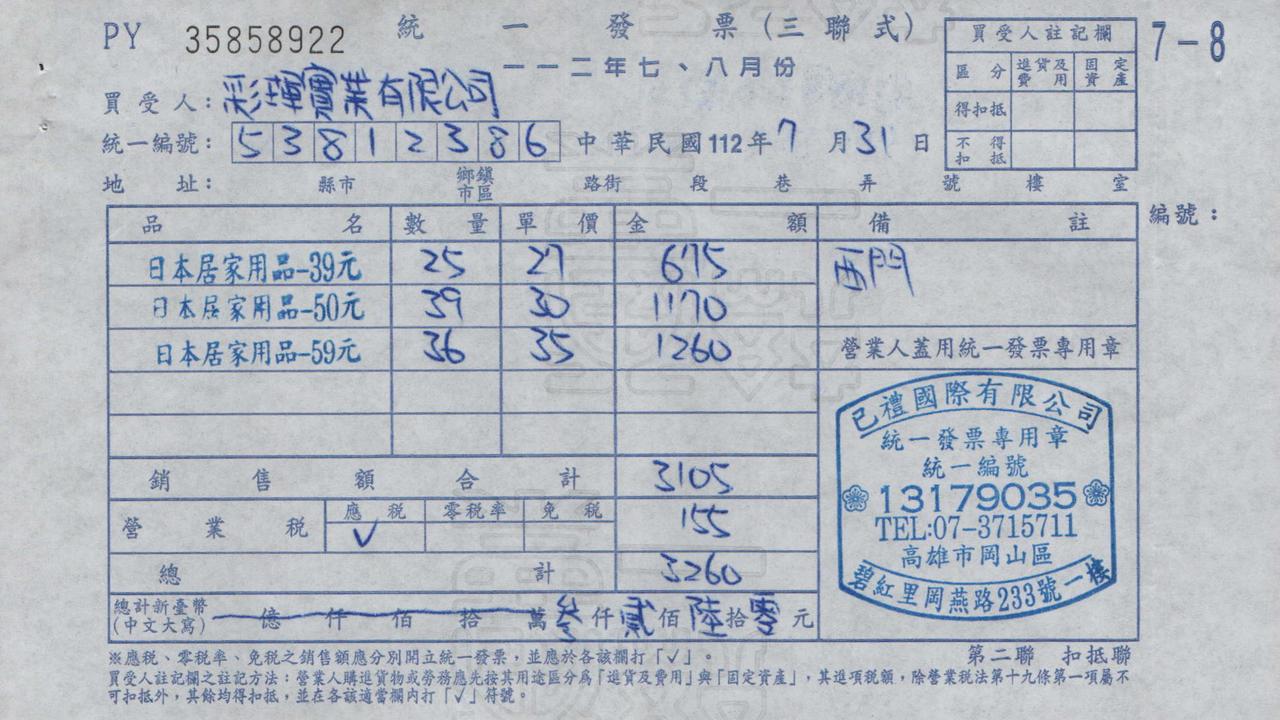 PY 35858922
統一發票(三聯式)
一一二年七、八月份
7-8
買受人註記欄
區分 進貨及費用 固定資產
得扣抵
不得扣抵
買受人:彩琿實業有限公司
統一編號:53812386 中華民國112年7月31日
地址: 縣市 鄉鎮市區 路街 段 巷 弄 號 樓 室
品名 數量 單價 金額 備註
編號:
日本居家用品-39元 25 27 675 西門
日本居家用品-50元 39 30 1170
日本居家用品-59元 36 35 1260
營業人蓋用統一發票專用章
銷售額合計 3105
營業稅 應稅 零稅率 免稅 155
V
總計 3260
總計新臺幣(中文大寫) 億仟佰拾萬參仟貳佰陸拾零元
已禮國際有限公司
統一發票專用章
統一編號
13179035
TEL:07-3715711
高雄市岡山區
碧紅里岡燕路233號一樓
※應稅、零稅率、免稅之銷售額應分別開立統一發票,並應於各該欄打「√」。
第二聯 扣抵聯
買受人註記欄之註記方法:營業人購進貨物或勞務應先按其用途區分為「進貨及費用」與「固定資產」,其進項稅額,除營業稅法第十九條第一項屬不
可扣抵外,其餘均得扣抵,並在各該適當欄內打「√」符號。